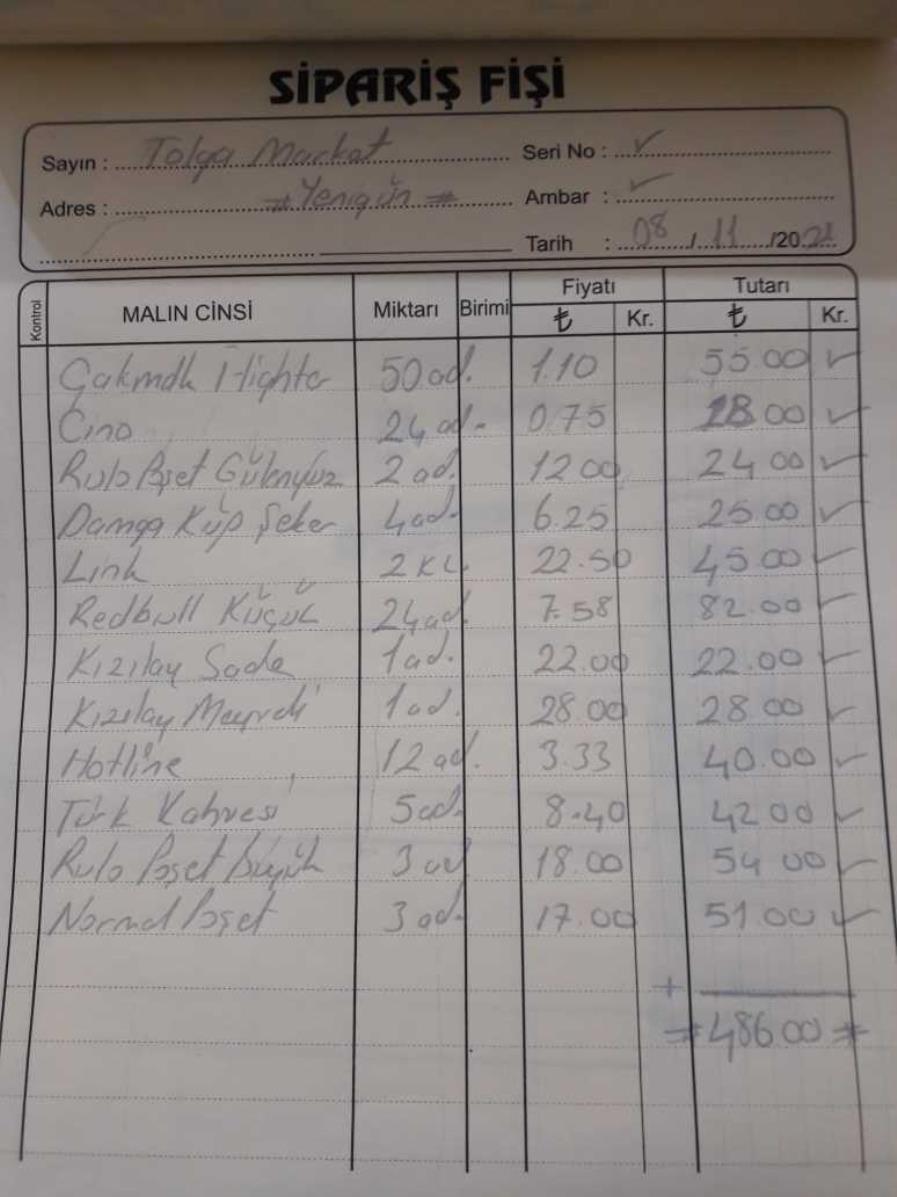 SİPARİŞ FİŞİ
Sayın : Tolga Market Seri No : ✓
Adres : # Yenigün # Ambar : ✓
Tarih : 08/11/2021
Kontrol MALIN CİNSİ Miktarı Birimi Fiyatı ₺ Kr. Tutarı ₺ Kr.
Çakmak 50 ad. 1.10 55 00 ✓
Cino 24 ad. 0.75 18.00 ✓
Rulo Poşet Güleryüz 2 ad. 12 00 24 00 ✓
Damga Küp Şeker 4 ad. 6.25 25.00 ✓
Link 2 KL 22.50 45.00 ✓
Redbull Küçük 24 ad. 7.58 82.00 ✓
Kızılay Sade 1 ad. 22.00 22.00 ✓
Kızılay Meyveli 1 ad. 28.00 28.00 ✓
Hotline 12 ad. 3.33 40.00 ✓
Türk Kahvesi 5 ad. 8.40 42 00 ✓
Rulo Poşet Büyük 3 ad 18.00 54 00 ✓
Normal Poşet 3 ad. 17.00 51.00 ✓
+
# 486 00 #